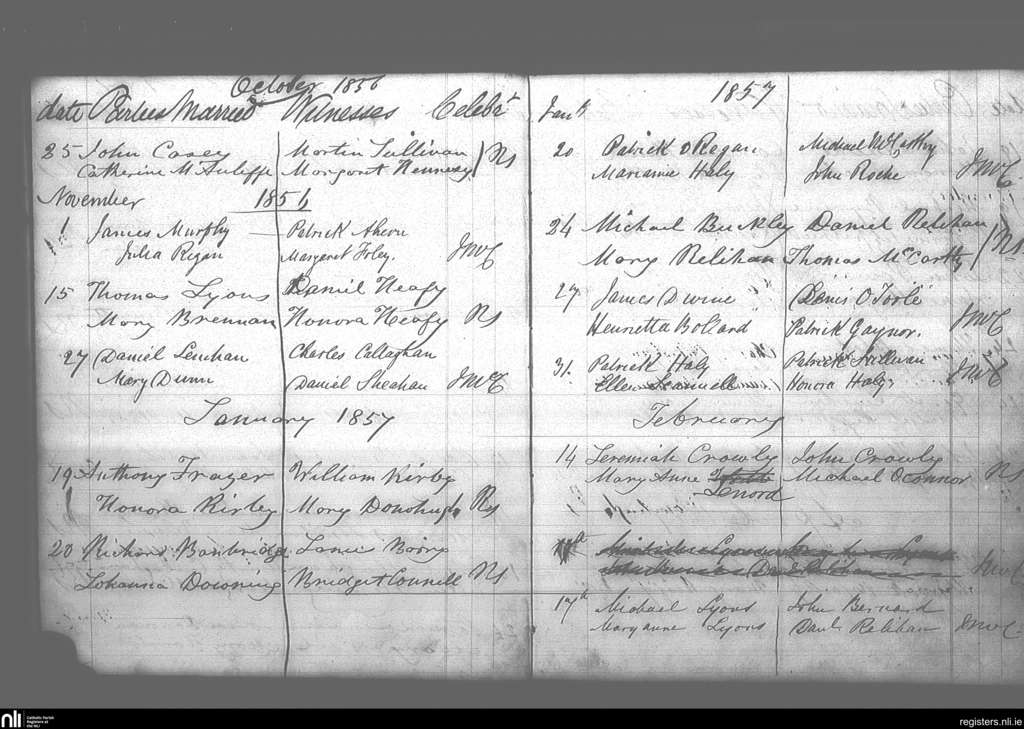 October 1856
date Parties Married Witnesses Celebt
25 John Casey Martin Sullivan
Catherine McAuliffe Margaret Hennesy Rs
November 1856
1 James Murphy Patrick Ahern
Julia Regan Margaret Foley. JMcC
15 Thomas Lyons Daniel Heafy
Mary Brennan Honora Heafy Rs
27 Daniel Lenihan Charles Callaghan
Mary Dunn Daniel Sheehan JMcC
January 1857
19 Anthony Frazer William Kirby
Honora Kirby Mary Donohuh Rs
20 Richard Banbridge
Johanna Downing Bridget Connell Rs
1857
Jany
20 Patrick O Regan Michael McCarthy
Marianne Haly John Roche JMcC
24 Michael Buckley Daniel Relihan
Mary Relihan Thomas McCarthy Rs
27 James Dwine Denis O'Toole
Henrietta Bollard Patrick Gaynor. JMcC
31. Patrick Haly Patrick Sullivan
Ellen Scannell Honora Haly JMcC
February
14 Jeremiah Crowly John Crowly
Mary Anne Michael Oconnor Rs
Lenord
17th
Relihan JMcC
17th Michael Lyons John Bernard
Maryanne Lyons Danl Relihan JMcC
nli Catholic Parish
Registers at
the NLI
registers.nli.ie